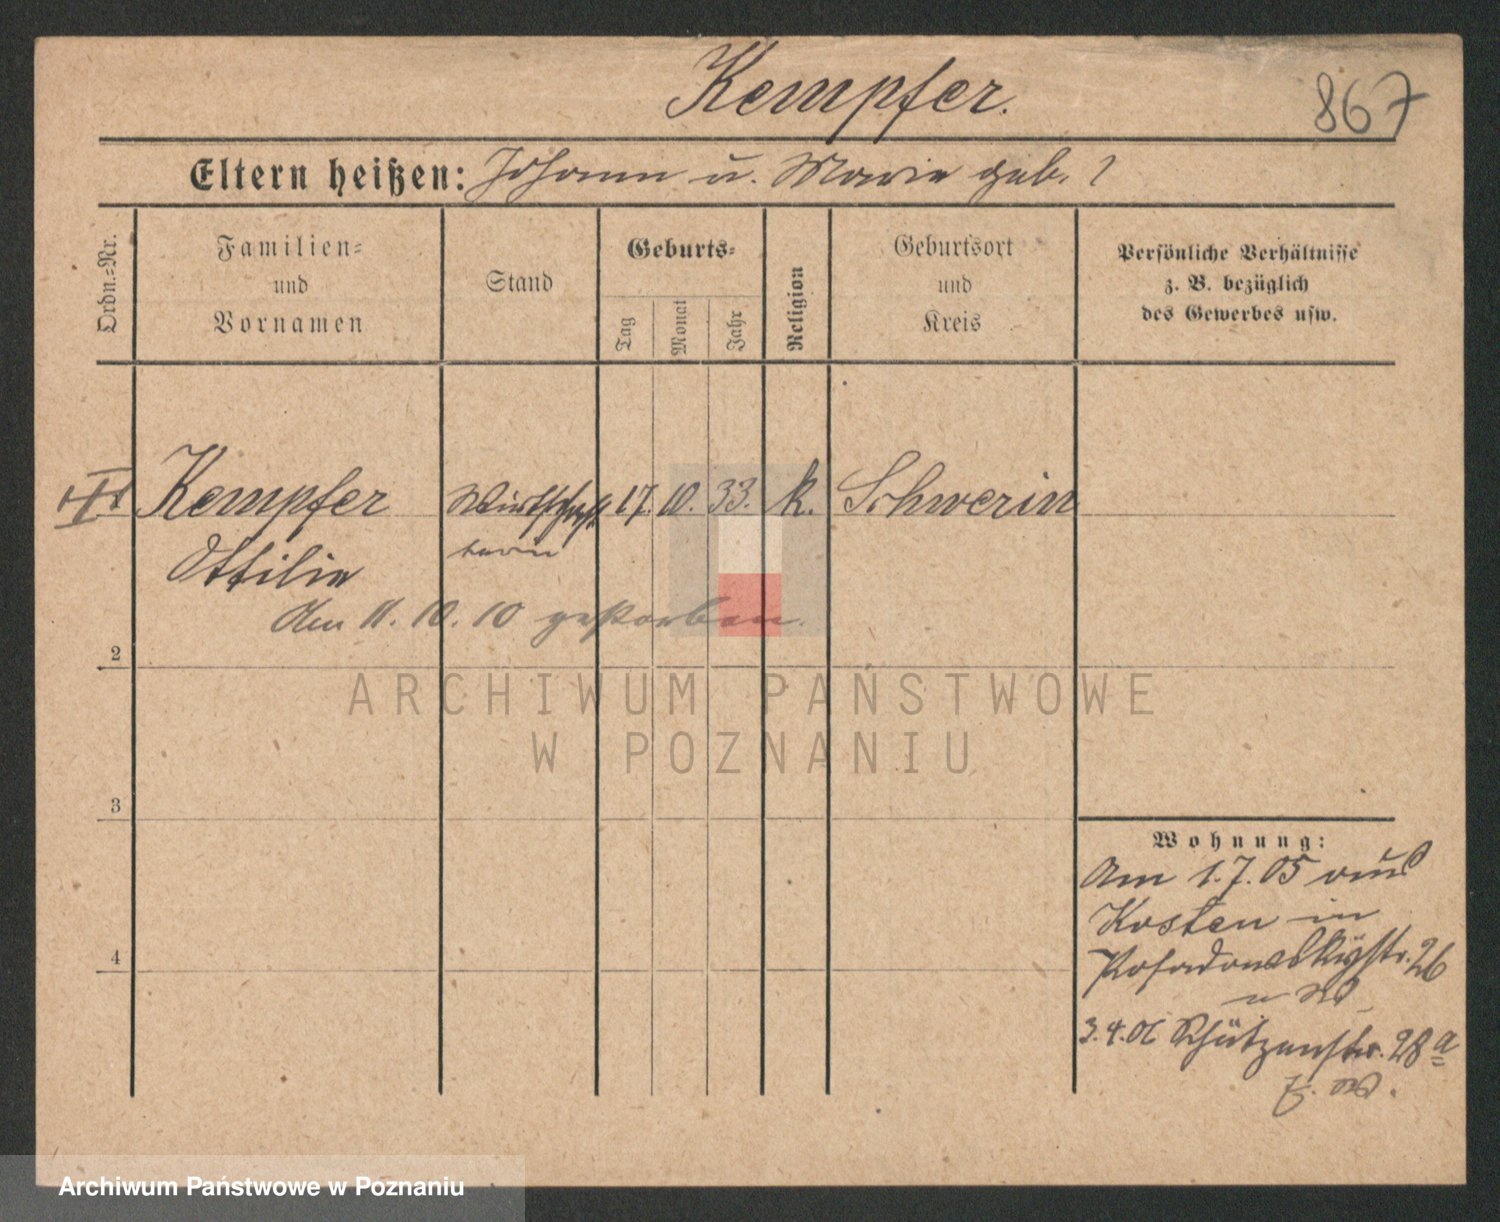 Kempfer.
867
Eltern heißen: Johann u. Marie geb. ?
Ordn.=Nr.
Familien=
und
Vornamen
Stand
Geburts=
Tag
Monat
Jahr
Religion
Geburtsort
und
Kreis
Persönliche Verhältnisse
z. B. bezüglich
des Gewerbes usw.
Kempfer Wirthschaf 17. 10. 33. k. Schwerin
Ottilie terin
Am 11. 10. 10 gestorben.
2
ARCHIWUM PAŃSTWOWE
W POZNANIU
3
Wohnung:
Am 1.7.05 aus
Kosten in
Posadowskystr. 26
4
3.4.06 Schützenstr. 28a
Archiwum Państwowe w Poznaniu